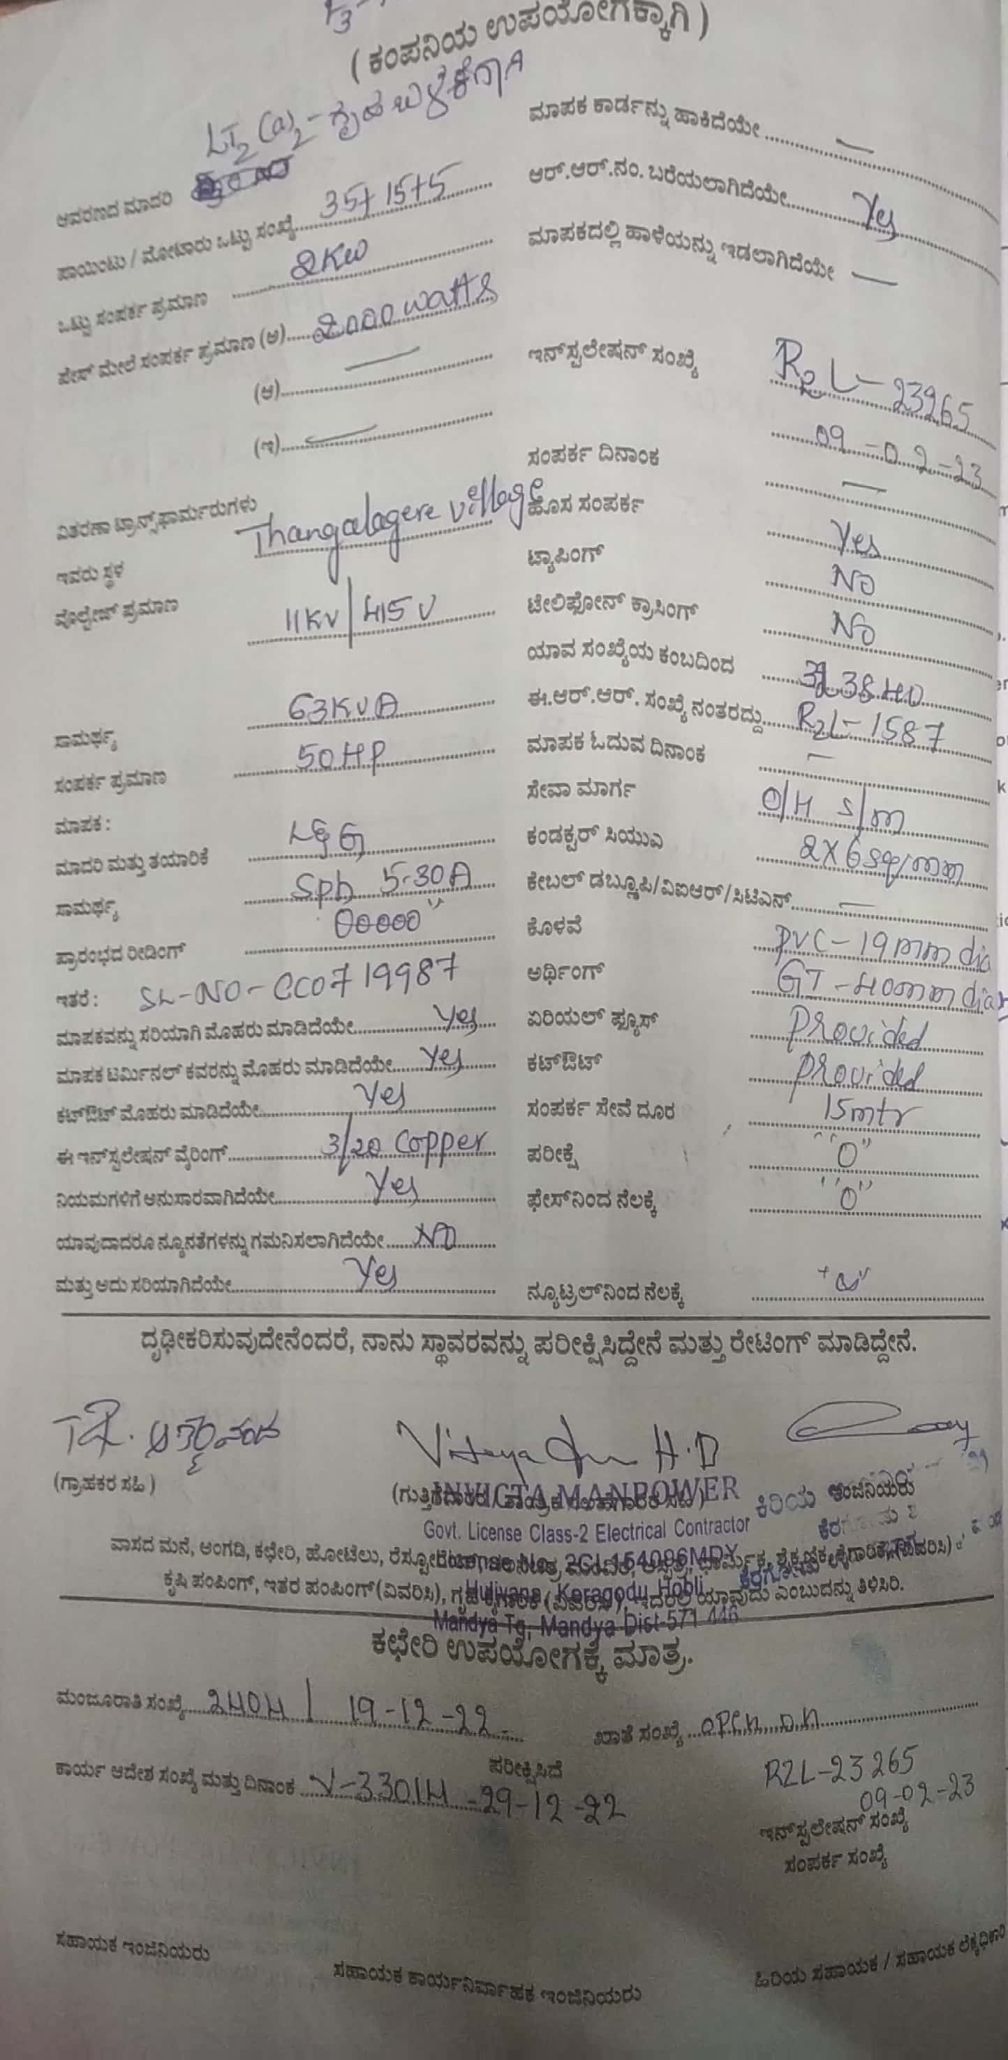 ( ಕಂಪನಿಯ ಉಪಯೋಗಕ್ಕಾಗಿ )
LT2 (a)2 - ಗೃಹ ಬಳಕೆಗಾಗಿ
ಆವರಣದ ಮಾದರಿ
ಪಾಯಿಂಟು / ಮೋಟಾರು ಒಟ್ಟು ಸಂಖ್ಯೆ 35+15+5
ಒಟ್ಟು ಸಂಪರ್ಕ ಪ್ರಮಾಣ 2KW
ಫೇಸ್ ಮೇಲೆ ಸಂಪರ್ಕ ಪ್ರಮಾಣ (ಅ) 2000 watts
(ಆ) —
(ಇ) —
ವಿತರಣಾ ಟ್ರಾನ್ಸ್‌ಫಾರ್ಮರುಗಳು
ಇವರು ಸ್ಥಳ Thangalagere village
ವೋಲ್ಟೇಜ್ ಪ್ರಮಾಣ 11KV/415V
ಸಾಮರ್ಥ್ಯ 63KVA
ಸಂಪರ್ಕ ಪ್ರಮಾಣ 50HP
ಮಾಪಕ :
ಮಾದರಿ ಮತ್ತು ತಯಾರಿಕೆ L&G
ಸಾಮರ್ಥ್ಯ Sph 5-30A
ಪ್ರಾರಂಭದ ರೀಡಿಂಗ್ 00000
ಇತರೆ : SL-NO-CC0719987
ಮಾಪಕವನ್ನು ಸರಿಯಾಗಿ ಮೊಹರು ಮಾಡಿದೆಯೇ Yes
ಮಾಪಕ ಟರ್ಮಿನಲ್ ಕವರನ್ನು ಮೊಹರು ಮಾಡಿದೆಯೇ Yes
ಕಟ್‌ಔಟ್ ಮೊಹರು ಮಾಡಿದೆಯೇ Yes
ಈ ಇನ್‌ಸ್ಟಲೇಷನ್ ವೈರಿಂಗ್ 3/20 Copper
ನಿಯಮಗಳಿಗೆ ಅನುಸಾರವಾಗಿದೆಯೇ Yes
ಯಾವುದಾದರೂ ನ್ಯೂನತೆಗಳನ್ನು ಗಮನಿಸಲಾಗಿದೆಯೇ NO
ಮತ್ತು ಅದು ಸರಿಯಾಗಿದೆಯೇ Yes
ಮಾಪಕ ಕಾರ್ಡನ್ನು ಹಾಕಿದೆಯೇ —
ಆರ್.ಆರ್.ನಂ. ಬರೆಯಲಾಗಿದೆಯೇ Yes
ಮಾಪಕದಲ್ಲಿ ಹಾಳೆಯನ್ನು ಇಡಲಾಗಿದೆಯೇ —
ಇನ್‌ಸ್ಟಲೇಷನ್ ಸಂಖ್ಯೆ R2L-23265
ಸಂಪರ್ಕ ದಿನಾಂಕ 09-02-23
ಹೊಸ ಸಂಪರ್ಕ —
ಟ್ಯಾಪಿಂಗ್ Yes
ಟೇಲಿಫೋನ್ ಕ್ರಾಸಿಂಗ್ NO
ಯಾವ ಸಂಖ್ಯೆಯ ಕಂಬದಿಂದ NO
ಈ.ಆರ್.ಆರ್. ಸಂಖ್ಯೆ ನಂತರದ್ದು R2L-1587
ಮಾಪಕ ಓದುವ ದಿನಾಂಕ —
ಸೇವಾ ಮಾರ್ಗ O/H S/m
ಕಂಡಕ್ಟರ್ ಸಿಯುಎ 2X6 sq/mm
ಕೇಬಲ್ ಡಬ್ಲ್ಯೂಪಿ/ವಿಐಆರ್/ಸಿಟಿಎನ್ —
ಕೊಳವೆ PVC-19mm dia
ಅರ್ಥಿಂಗ್ GI-40mm dia
ಏರಿಯಲ್ ಫ್ಯೂಸ್ Provided
ಕಟ್‌ಔಟ್ Provided
ಸಂಪರ್ಕ ಸೇವೆ ದೂರ 15mtr
ಪರೀಕ್ಷೆ "0"
ಫೇಸ್‌ನಿಂದ ನೆಲಕ್ಕೆ "0"
ನ್ಯೂಟ್ರಲ್‌ನಿಂದ ನೆಲಕ್ಕೆ
ದೃಢೀಕರಿಸುವುದೇನೆಂದರೆ, ನಾನು ಸ್ಥಾವರವನ್ನು ಪರೀಕ್ಷಿಸಿದ್ದೇನೆ ಮತ್ತು ರೇಟಿಂಗ್ ಮಾಡಿದ್ದೇನೆ.
H.D
(ಗ್ರಾಹಕರ ಸಹಿ)
INVICTA MANPOWER
ಕಿರಿಯ ಇಂಜಿನಿಯರು
Govt. License Class-2 Electrical Contractor
ವಾಸದ ಮನೆ, ಅಂಗಡಿ, ಕಛೇರಿ, ಹೋಟೆಲು,
ಕೃಷಿ ಪಂಪಿಂಗ್, ಇತರ ಪಂಪಿಂಗ್(ವಿವರಿಸಿ), ಗೃಹ ಯಾವುದು ಎಂಬುದನ್ನು ತಿಳಿಸಿರಿ.
Keragodu Hobli
Mandya Tq, Mandya Dist-571 446
ಕಛೇರಿ ಉಪಯೋಗಕ್ಕೆ ಮಾತ್ರ.
ಮಂಜೂರಾತಿ ಸಂಖ್ಯೆ 2404 / 19-12-22
ಖಾತೆ ಸಂಖ್ಯೆ open on
ಪರೀಕ್ಷಿಸಿದೆ
ಕಾರ್ಯ ಆದೇಶ ಸಂಖ್ಯೆ ಮತ್ತು ದಿನಾಂಕ V-33014 -29-12-22
R2L-23265
09-02-23
ಇನ್‌ಸ್ಟಲೇಷನ್ ಸಂಖ್ಯೆ
ಸಂಪರ್ಕ ಸಂಖ್ಯೆ
ಸಹಾಯಕ ಇಂಜಿನಿಯರು
ಸಹಾಯಕ ಕಾರ್ಯನಿರ್ವಾಹಕ ಇಂಜಿನಿಯರು
ಹಿರಿಯ ಸಹಾಯಕ / ಸಹಾಯಕ ಲೆಕ್ಕಾಧಿಕಾರಿ